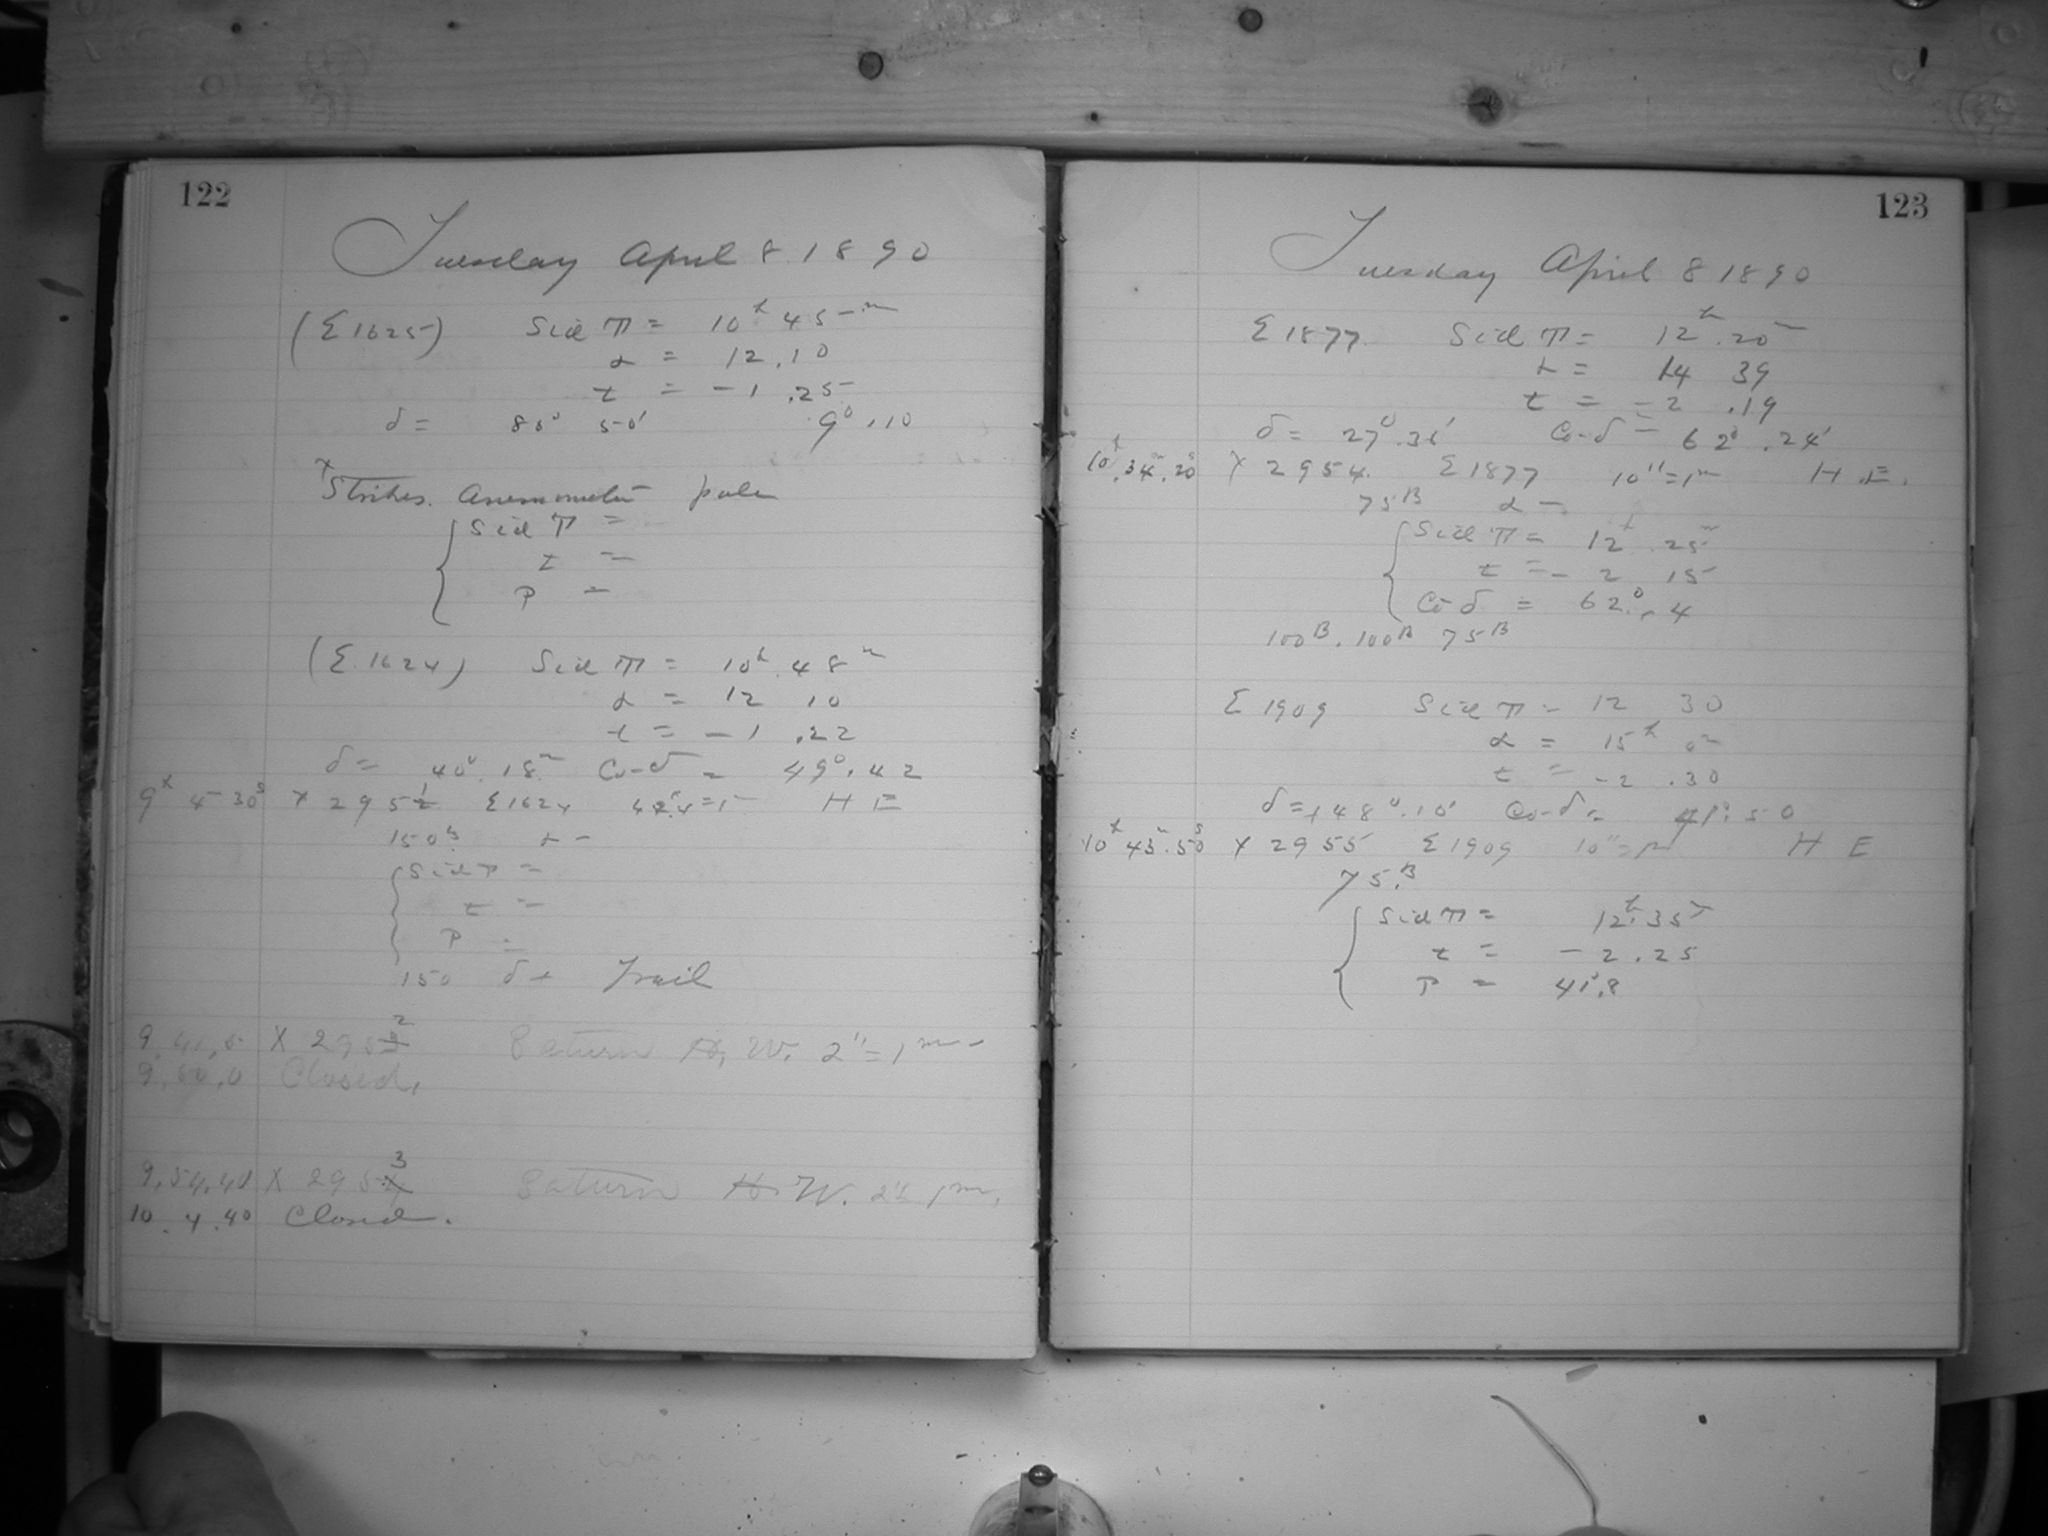 122
Tuesday April 8 1890
(Σ1625) Sid T = 10h 45m
α = 12.10
t = -1.25
δ = 80° 50' 9°.10
x Strikes. Anemometer pole
Sid T =
t =
P =
(Σ.1624) Sid T = 10h.48m
α = 12 10
t = -1.22
δ = 40°.18 Co-δ = 49°.42
30s X 2951 Σ1624 H E
150 α -
Sid T =
t =
P =
150 δ + Trail
9. X 2952 Saturn H. W. 2" = 1m
9. .0 Closed.
9.54.40 X 2953 Saturn H. W. 2" 1m.
10.4.40 Closed.
123
Tuesday April 8 1890
Σ1877. Sid T = 12h.20m
α = 14 39
t = -2.19
δ = 27°.36' Co-δ = 62°.24'
10h.34m.20s X 2954. Σ1877 10" = 1m H.E.
75B α -
Sid T = 12h.25m
t = -2 15
Co-δ = 62°.4
100B.100B 75B
Σ1909 Sid T = 12 30
α = 15h 0m
t = -2.30
δ = +48°.10' Co-δ = 41°.50
10h 43m.50s X 2955 Σ1909 10" = 1m H E
75.B
Sid T = 12h.35m
t = -2.25
P = 41°.8